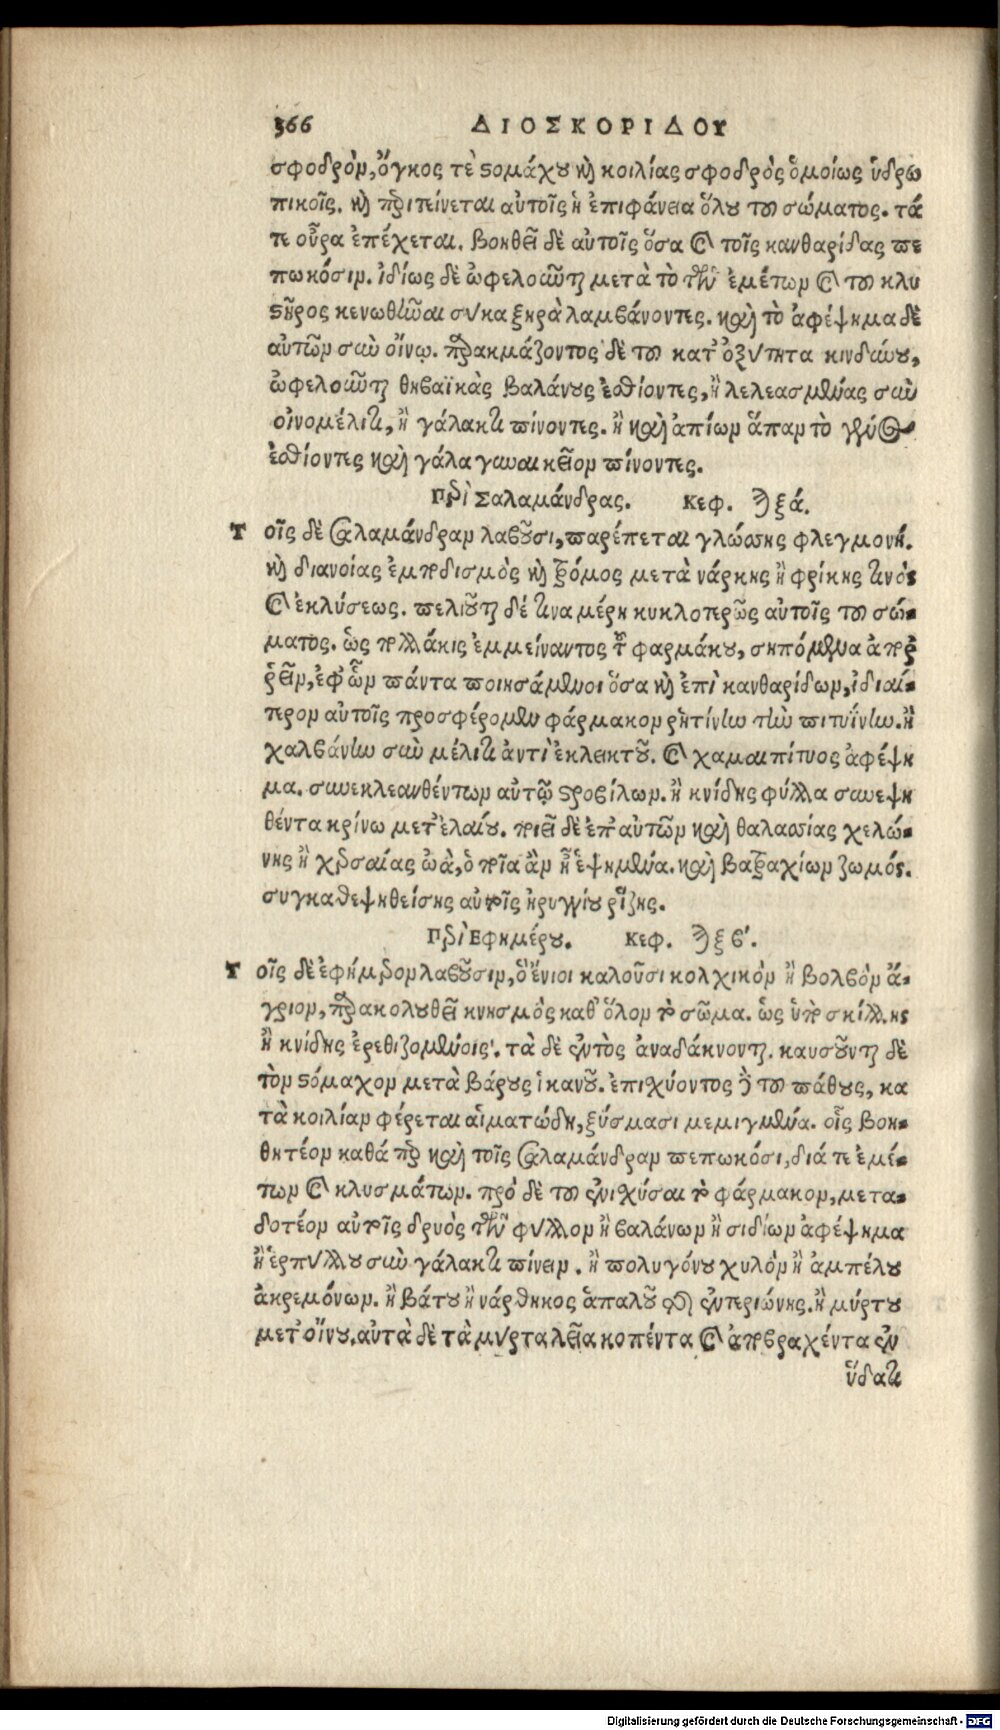 366 ΔΙΟΣΚΟΡΙΔΟΥ
σφοδρὸν, ὄγκος τὲ στομάχου καὶ κοιλίας σφοδρὸς ὁμοίως ὑδρω
πικοῖς. καὶ περιτείνεται αὐτοῖς ἡ ἐπιφάνεια ὅλου τοῦ σώματος. τά
τε οὖρα ἐπέχεται. βοηθεῖ δὲ αὐτοῖς ὅσα καὶ τοῖς κανθαρίδας πε
πωκόσιν. ἰδίως δὲ ὠφελοῦνται μετὰ τὸ τῶν ἐμέτων καὶ τοῦ κλυ
στῆρος κενωθῆναι σῦκα ξηρὰ λαμβάνοντες. καὶ τὸ ἀφέψημα δὲ
αὐτῶν σὺν οἴνῳ. παρακμάζοντος δὲ τοῦ κατ' ὀξύτητα κινδύνου,
ὠφελοῦνται θηβαϊκὰς βαλάνους ἐσθίοντες, ἢ λελεασμένας σὺν
οἰνομέλιτι, ἢ γάλακτι πίνοντες. ἢ καὶ ἀπίων ἅπαν τὸ γένος
ἐσθίοντες καὶ γάλα γυναικεῖον πίνοντες.
Περὶ Σαλαμάνδρας. Κεφ. ρξά.
Τοῖς δὲ σαλαμάνδραν λαβοῦσι, παρέπεται γλώσσης φλεγμονή.
καὶ διανοίας ἐμποδισμὸς καὶ τρόμος μετὰ νάρκης ἢ φρίκης τινὸς
καὶ ἐκλύσεως. πελιοῦται δέ τινα μέρη κυκλοτερῶς αὐτοῖς τοῦ σώ-
ματος. ὡς πολλάκις ἐμμείναντος τοῦ φαρμάκου, σηπόμενα ἀπορ
ῥεῖν, ἐφ' ὧν πάντα ποιησάμενοι ὅσα καὶ ἐπὶ κανθαρίδων, ἰδιαί-
τερον αὐτοῖς προσφέρομεν φάρμακον ῥητίνην τὴν πιτυΐνην. ἢ
χαλβάνην σὺν μέλιτι ἀντὶ ἐκλεικτοῦ. καὶ χαμαιπίτυος ἀφέψη
μα. συνεκλεανθέντων αὐτῷ στροβίλων. ἢ κνίδης φύλλα συνεψη
θέντα κρίνω μετ' ἐλαίου. ποιεῖ δὲ ἐπ' αὐτῶν καὶ θαλασσίας χελώ-
νης ἢ χερσαίας ὠὰ, ὁποῖα ἂν ᾖ ἑψημένα. καὶ βατραχίων ζωμός.
συγκαθεψηθείσης αὐτοῖς ἠρυγγίου ῥίζης.
Περὶ Ἐφημέρου. Κεφ. ρξβ'.
Τοῖς δὲ ἐφήμερον λαβοῦσιν, ὃ ἔνιοι καλοῦσι κολχικὸν ἢ βολβὸν ἄ-
γριον, παρακολουθεῖ κνησμὸς καθ' ὅλον τὸ σῶμα. ὡς ὑπὸ σκίλλης
ἢ κνίδης ἐρεθιζομένοις. τὰ δὲ ἐντὸς ἀναδάκνονται. καυσοῦνται δὲ
τὸν στόμαχον μετὰ βάρους ἱκανοῦ. ἐπιχύοντος δὲ τοῦ πάθους, κα
τὰ κοιλίαν φέρεται αἱματώδη, ξύσμασι μεμιγμένα. οἷς βοη-
θητέον καθά περ καὶ τοῖς σαλαμάνδραν πεπωκόσι, διά τε ἐμέ-
των καὶ κλυσμάτων. πρὸ δὲ τοῦ ἐνιχύσαι τὸ φάρμακον, μετα-
δοτέον αὐτοῖς δρυὸς τῶν φύλλον ἢ βαλάνων ἢ σιδίων ἀφέψημα
ἢ ἑρπύλλου σὺν γάλακτι πίνειν. ἢ πολυγόνου χυλὸν ἢ ἀμπέλου
ἀκρεμόνων. ἢ βάτου ἢ νάρθηκος ἁπαλοῦ τῆς ἐντεριώνης. ἢ μύρτου
μετ' οἴνου. αὐτὰ δὲ τὰ μύρτα λεῖα κοπέντα καὶ ἀποβραχέντα ἐν
ὕδατι
Digitalisierung gefördert durch die Deutsche Forschungsgemeinschaft - DFG